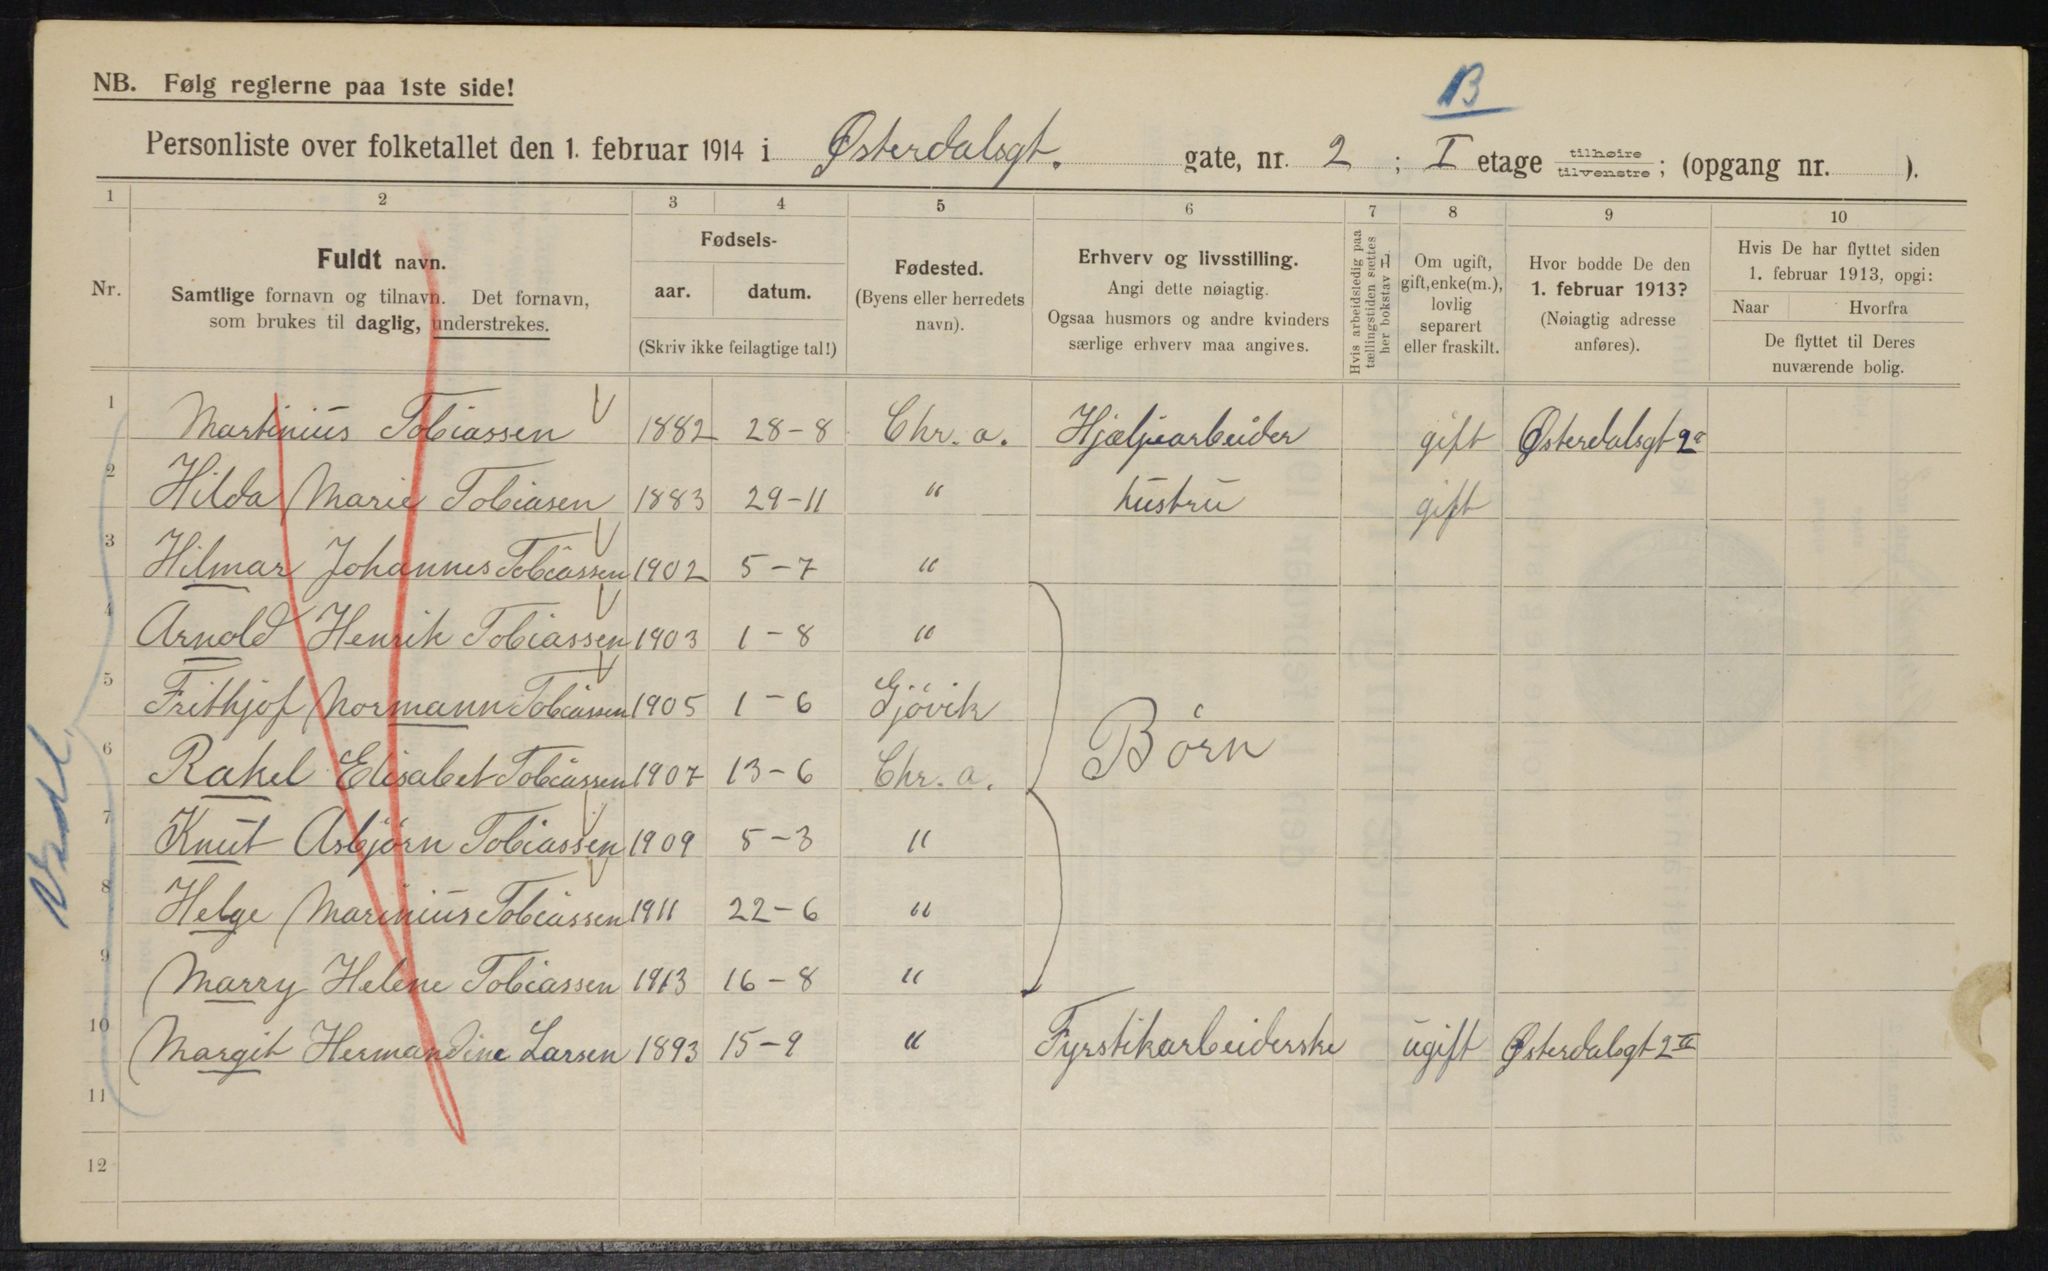 B
NB. Følg reglerne paa 1ste side!
Personliste over folketallet den 1. februar 1914 i Østerdalsgt. gate, nr. 2 ; I etage tilhøire tilvenstre ; (opgang nr. ).
1 2 3 4 5 6 7 8 9 10
Nr.
Fuldt navn.
Samtlige fornavn og tilnavn. Det fornavn,
som brukes til daglig, understrekes.
Fødsels-
aar. datum.
(Skriv ikke feilagtige tal!)
Fødested.
(Byens eller herredets
navn).
Erhverv og livsstilling.
Angi dette nøiagtig.
Ogsaa husmors og andre kvinders
særlige erhverv maa angives.
Hvis arbeidsledig paa
tællingstiden sættes
her bokstav L
Om ugift,
gift, enke(m.),
lovlig
separert
eller fraskilt.
Hvor bodde De den
1. februar 1913?
(Nøiagtig adresse
anføres).
Hvis De har flyttet siden
1. februar 1913, opgi:
Naar Hvorfra
De flyttet til Deres
nuværende bolig.
1 Martinius Tobiassen 1882 28-8 Chr. a. Hjælpearbeider gift Østerdalsgt 2a
2 Hilda Marie Tobiasen 1883 29-11 " hustru gift
3 Hilmar Johannes Tobiassen 1902 5-7 "
4 Arnold Henrik Tobiassen 1903 1-8 "
5 Frithjof Normann Tobiassen 1905 1-6 Gjövik
Børn
6 Rakel Elisabet Tobiassen 1907 13-6 Chr. a.
7 Knut Asbjørn Tobiassen 1909 5-3 "
8 Helge Marinius Tobiassen 1911 22-6 "
9 Marry Helene Tobiassen 1913 16-8 "
10 Margit Hermandine Larsen 1893 15-9 " Fyrstikarbeiderske ugift Østerdalsgt 2a
11
12